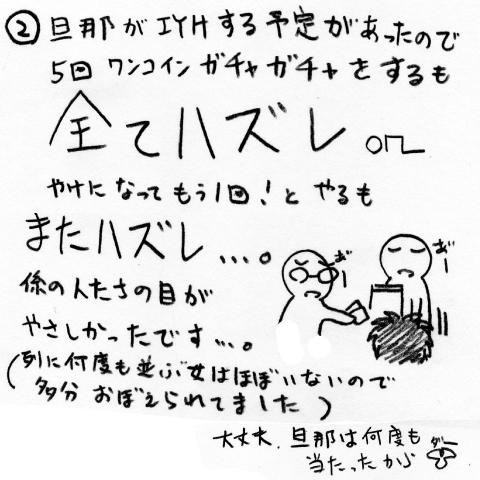 ② 旦那がIYHする予定があったので
5回 ワンコイン ガチャガチャをするも
全てハズレ orz
やけになって もう1回！と やるも
またハズレ...。
係の人たちの目が
やさしかったです...。
(列に何度も並ぶ女はほぼいないので
多分 おぼえられてました)
じー
じー
大丈夫、旦那は何度も
当たったから